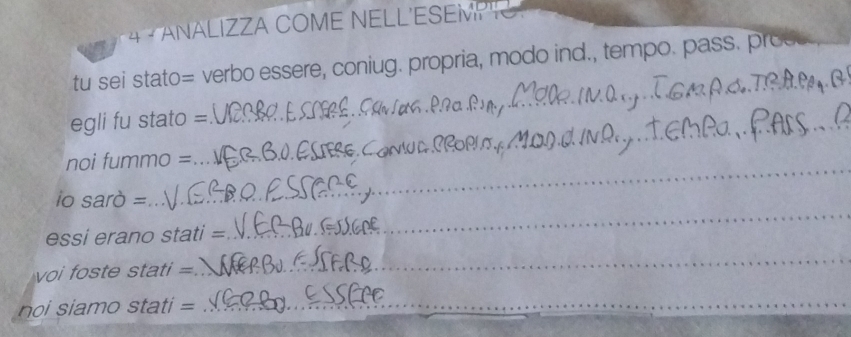 4 - ANALIZZA COME NELL'ESEMPIO
tu sei stato= verbo essere, coniug. propria, modo ind., tempo. pass. pro
egli fu stato = VERBO ESSERE, CONIUG. PROPRIA, MODO IND., TEMPO. TRAPA.
noi fummo = VERBO ESSERE CONIUG. PROPRIA, MODO IND., TEMPO, PASS.
io sarò = VERBO ESSERE,
essi erano stati = VERBO ESSERE
voi foste stati = VERBO ESSERE
noi siamo stati = VERBO ESSERE